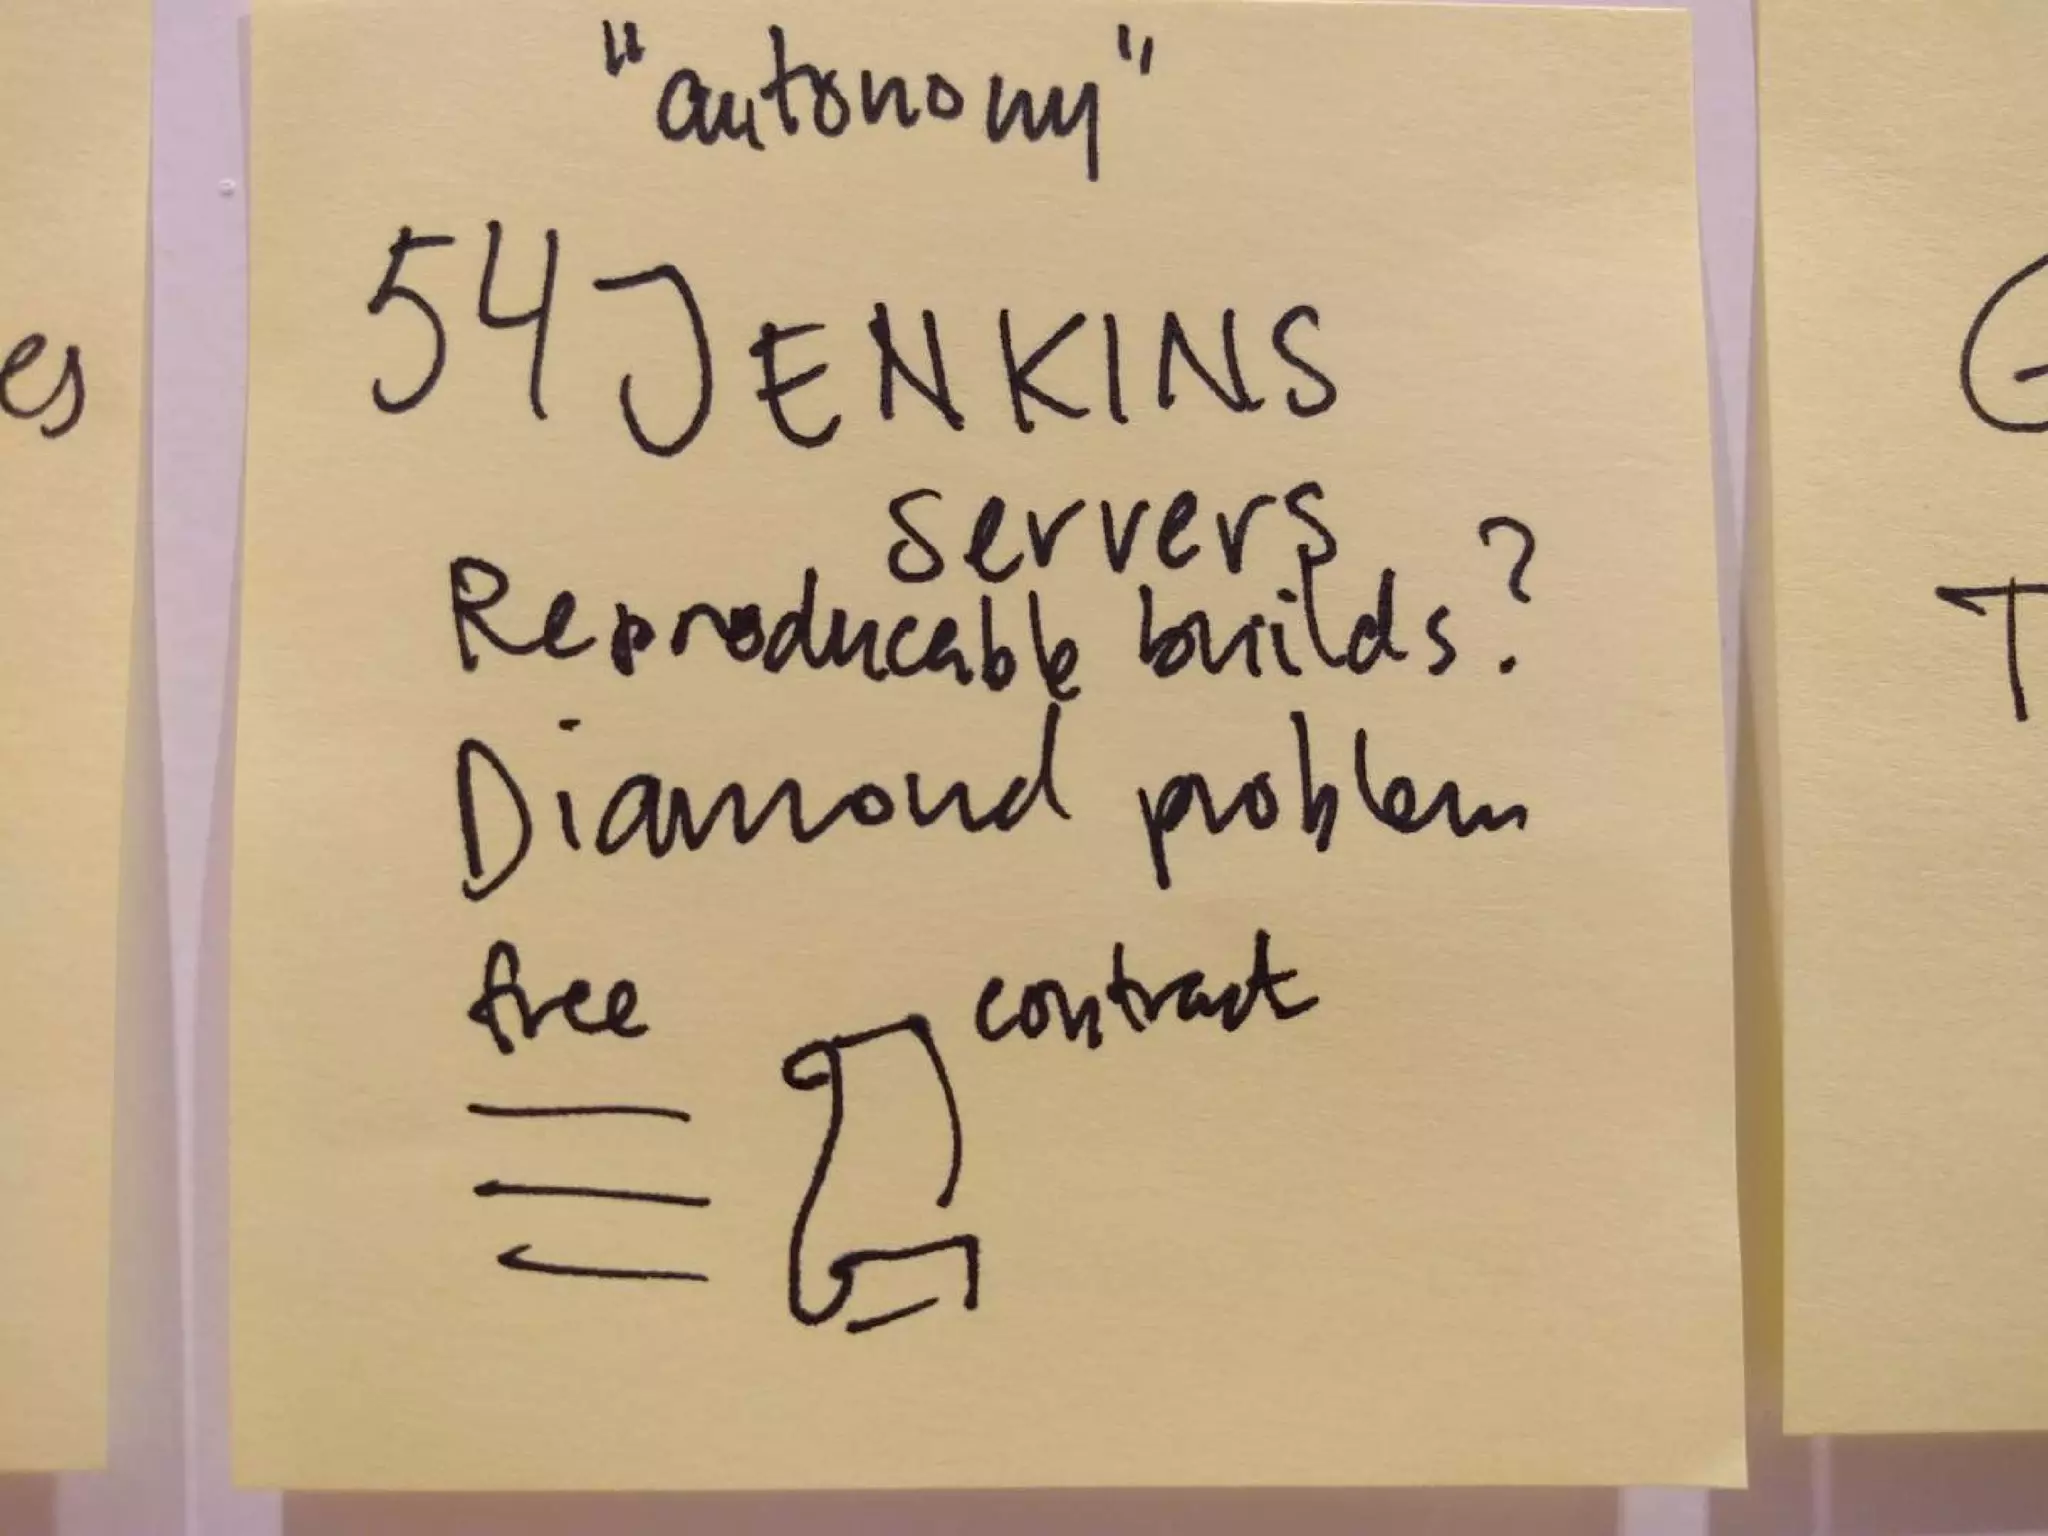 "autonomy"
54 JENKINS
servers
Reproducable builds?
Diamond problem
free contract
es
G
T